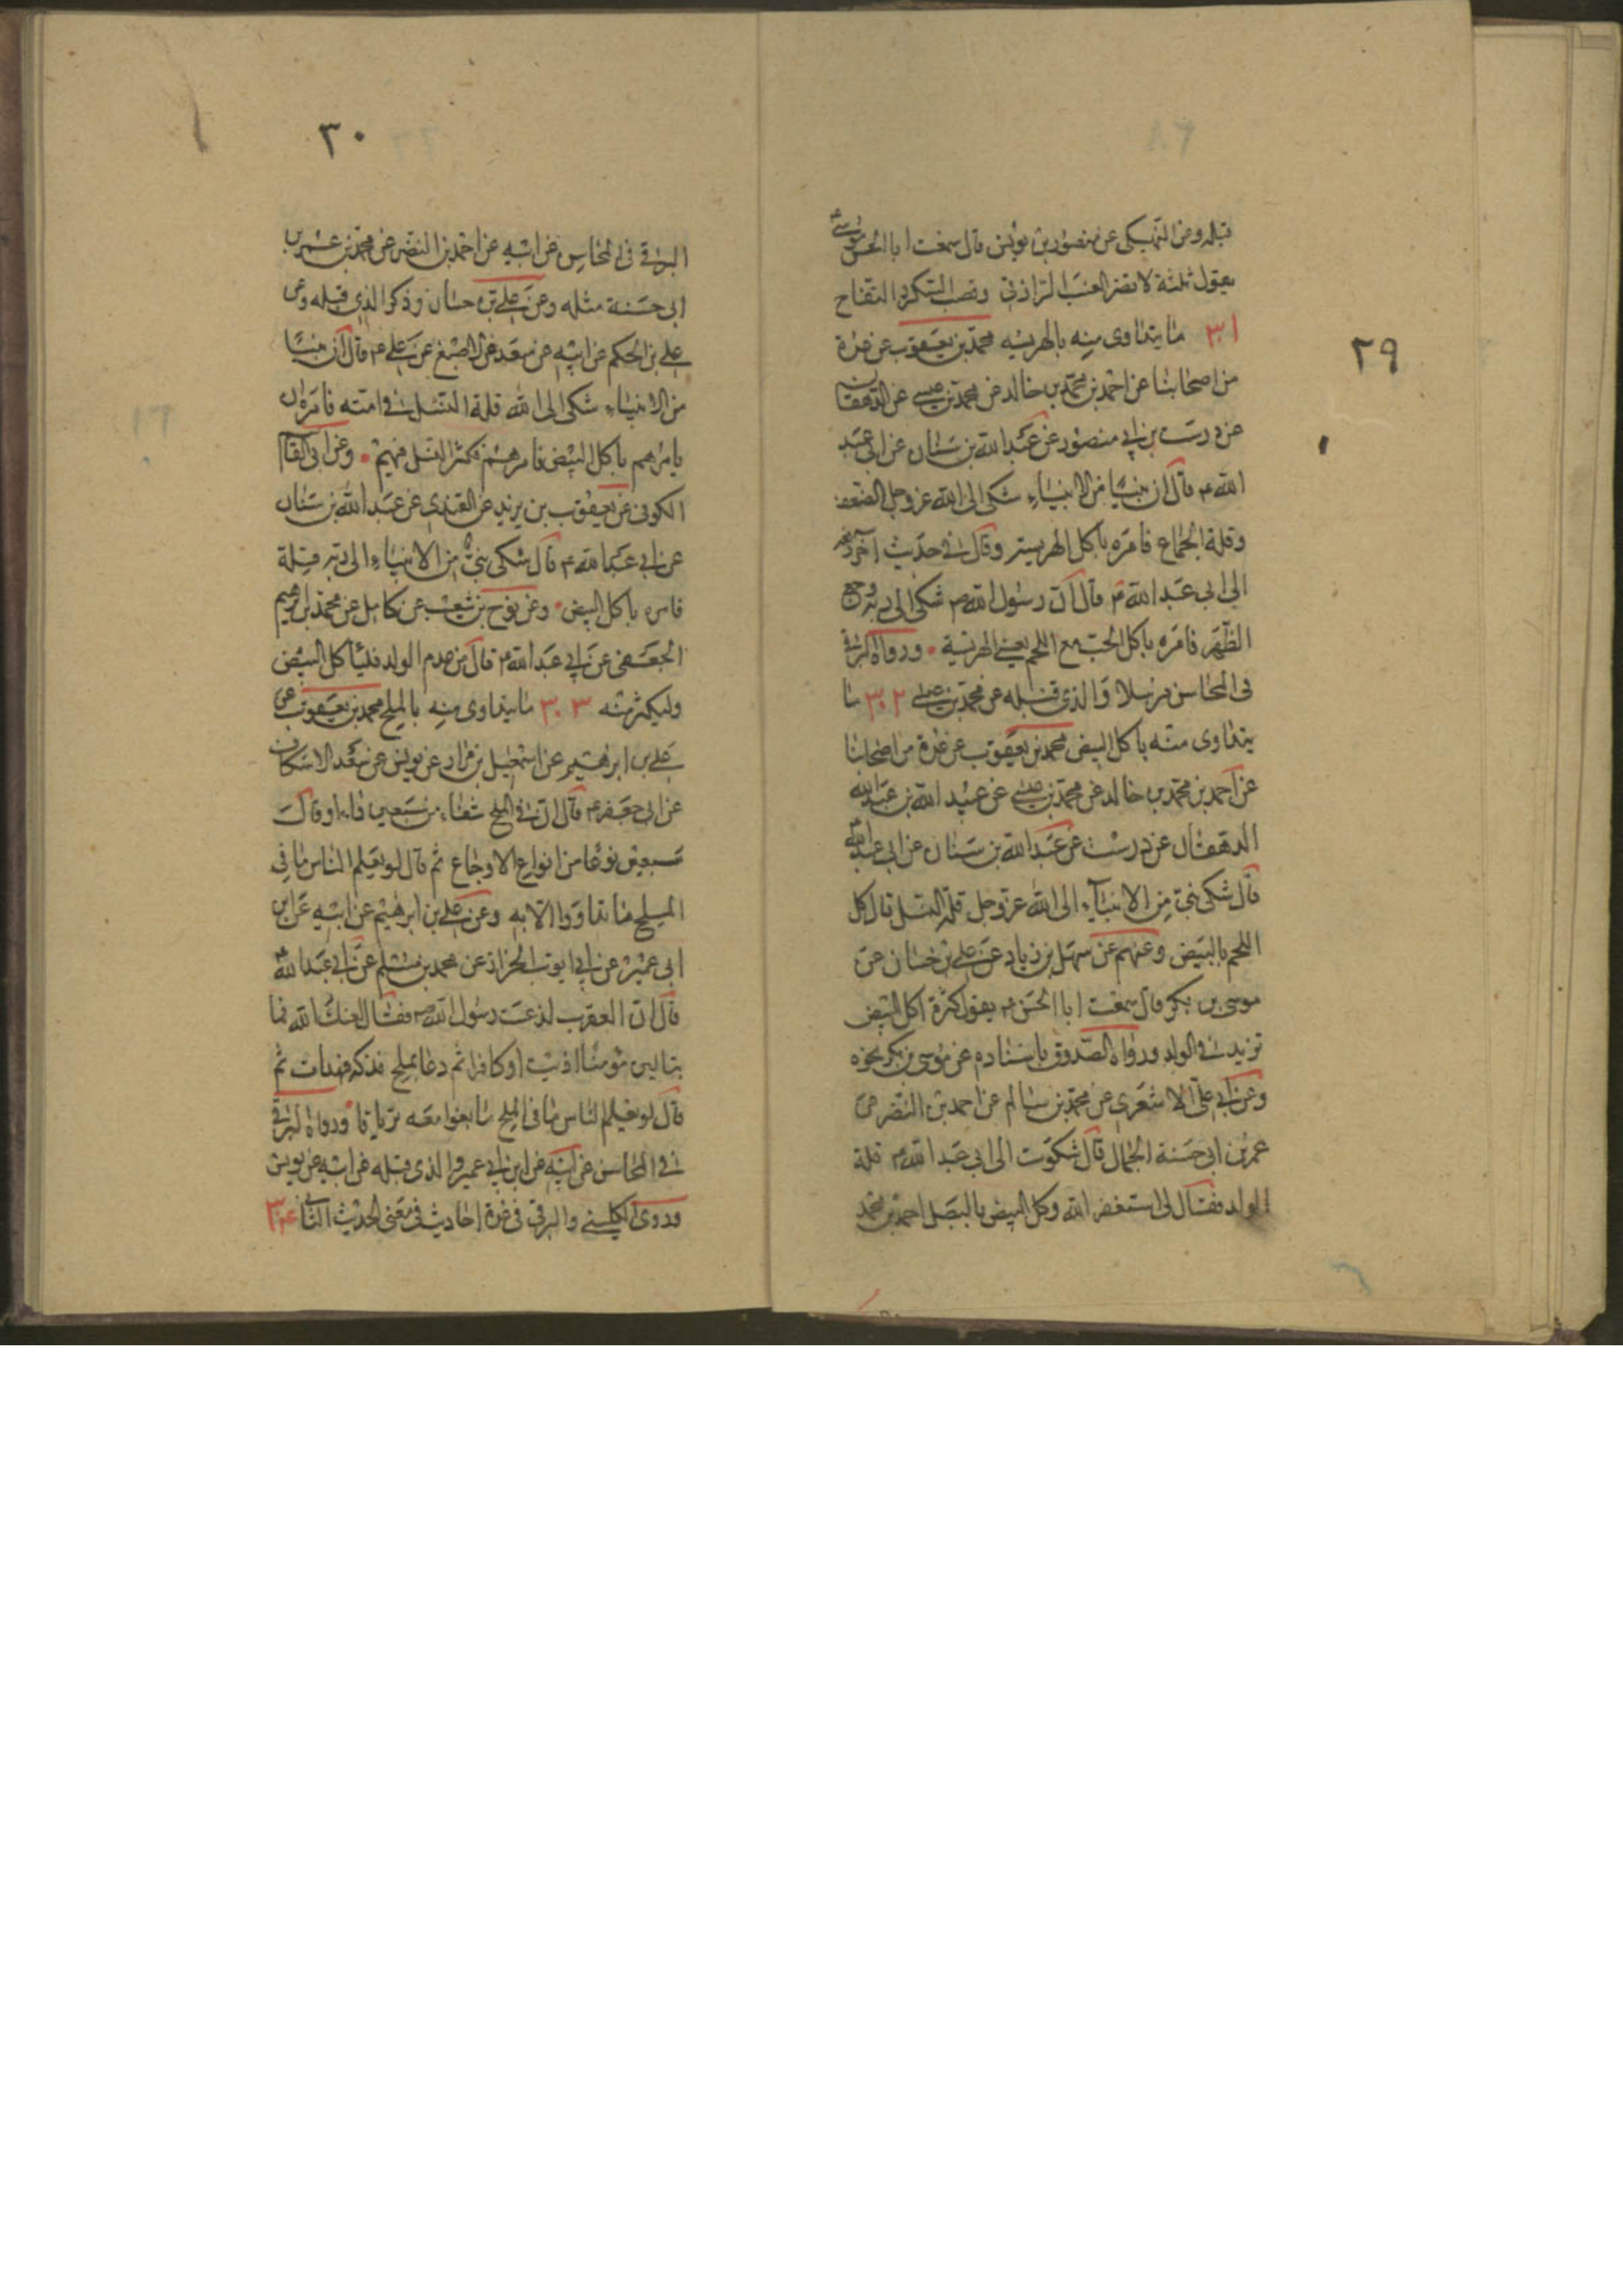 ٢٩
قبله وعن النهيكى عن منصور بن يونس قال سمعت ابا الحسن موسى ع
يقول ثلثة لا تضر العنب الرازقى وقصب السكر و التفاح
٣٠١ ما يتداوى منه بالهريسه محمد بن يعقوب عن عدة
من اصحابنا عن احمد بن محمد بن خالد عن محمد بن عيسى عن الدهقان
عن درست بن ابى منصور عن عبد الله بن سنان عن ابى عبد
الله ع قال ان نبيا من الانبياء شكى الى الله عز وجل الضعف
وقلة الجماع فامره باكل الهريسة وقال فى حديث آخر رفعه
الى ابى عبد الله ع قال ان رسول الله ص شكى الى ربه وجع
الظهر فامره باكل الحب مع اللحم يعنى الهريسة ورواه البرقى
فى المحاسن مرسلا والذى قبله عن محمد بن عيسى ٣٠٢ ما
يتداوى منه باكل البيض محمد بن يعقوب عن عدة من اصحابنا
عن احمد بن محمد بن خالد عن محمد بن عيسى عن عبيد الله بن عبد الله
الدهقان عن درست عن عبد الله بن سنان عن ابى عبد الله ع
قال شكى نبى من الانبيآء الى الله عز وجل قلة النسل قال كل
اللحم بالبيض وعنهم عن سهل بن زياد عن على بن حسان عن
موسى بن بكر قال سمعت ابا الحسن ع يقول كثرة اكل البيض
تزيد فى الولد ورواه الصدوق باسناده عن موسى بن بكر نحوه
وعن ابى على الاشعرى عن محمد بن سالم عن احمد بن النضر عن
عمر بن ابى حسنة الجمال قال شكوت الى ابى عبد الله ع قلة
الولد فقال لى استغفر الله وكل البيض بالبصل احمد بن محمد
٣٠
البرقى فى المحاسن عن ابيه عن احمد بن النضر عن محمد بن عمر بن
ابى حسنة مثله وعن على بن حسان وذكر الذى قبله وعن
على بن الحكم عن ابيه عن سعد عن الاصبغ عن على ع قال ان نبيا
من الانبياء شكى الى الله قلة النسل فى امته فامره ان
يامرهم باكل البيض فامرهم فكثر النسل فيهم وعن ابى القاسم
الكوفى عن يعقوب بن يزيد عن القندى عن عبد الله بن سنان
عن ابى عبد الله ع قال شكى نبى من الانبياء الى ربه قلة
فامره باكل البيض وعن نوح بن شعيب عن كامل عن محمد بن ابرهيم
الجعفى عن ابى عبد الله ع قال من عدم الولد فليأكل البيض
وليكثر منه ٣٠٣ ما يتداوى منه بالملح محمد بن يعقوب عن
على بن ابرهيم عن اسمعيل بن مرار عن يونس عن سعد الاسكاف
عن ابى جعفر ع قال ان فى الملح شفاء من سبعين داء او قال
سبعين نوعا من انواع الاوجاع ثم قال لو يعلم الناس ما فى
الملح ما تداووا الا به وعن على بن ابرهيم عن ابيه عن ابن
ابى عمير عن ابى ايوب الخزاز عن محمد بن مسلم عن ابى عبد الله ع
قال ان العقرب لذعت رسول الله ص فقال لعنك الله فما
تبالين مؤمنا اذيت او كافرا ثم دعا بملح فدلكه فهدات ثم
قال لو يعلم الناس ما فى الملح ما بغوا معه ترياقا ورواه البرقى
فى المحاسن عن ابيه عن ابن ابى عمير والذى قبله عن ابيه عن يونس
وروى الكلينى والبرقى فى عدة احاديث فى معنى الحديث الثانى ٣٠٤